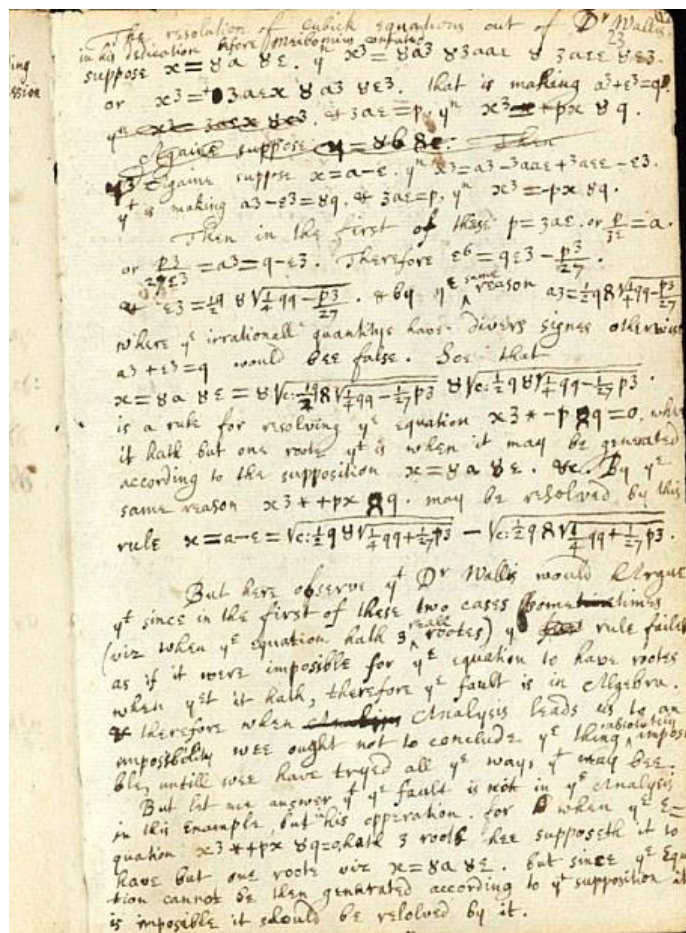 The resolution of Cubick Equations out of Dr Wallis
in his dedication before Meibomius confuted. 23
suppose x = 8a 8ε. yn x3 = 8a3 83aaε 8 3aεε 8ε3.
or x3 = 3aεx 8 a3 8ε3. that is making a3+ε3=q.
yn x3 = 3aεx 8ε3. & 3aε=p, yn x3 = +px 8q.
Againe suppose
Againe suppose x=a-ε. yn x3=a3-3aaε+3aεε-ε3.
yt is making a3-ε3=8q. & 3aε=p, yn x3=-px 8q.
Then in the first of these p=3aε. or p/3ε=a.
or p3/27ε3=a3=q-ε3. Therefore ε6=qε3-p3/27.
& ε3=½q 8√¼qq-p3/27. & by yε same reason a3=½q8√¼qq-p3/27
where yε irrationall quantitys have divers signes otherwise
a3+ε3=q would bee false. Soe that
x=8a 8ε=8√c:½q8√¼qq-1/27p3 8√c:½q8√¼qq-1/27p3.
is a rule for resolving yε equation x3*-p 8q=0. when
it hath but one roote yt is when it may be generated
according to the supposition x=8a 8ε. &c. By yε
same reason x3*+px 8q. may be resolved by this
rule x=a-ε=√c:½q8√¼qq+1/27p3 - √c:½q8√¼qq+1/27p3.
But here observe yt Dr Wallis would Argue
yt since in the first of these two cases sometimes
(viz when yε equation hath 3 reall rootes) yε rule failes
as if it were imposible for yε equation to have roots
when yet it hath, therefore yε fault is in Algebra.
& therefore when Analysis leads us to an
impossibility wee ought not to conclude yε thing absolutely imposi
ble, untill wee have tryed all yε ways yt may bee.
But let mee answer yt yε fault is not in yε Analysis
in this example, but his opperation. for when yε E=
quation x3*+px 8q=0, hath 3 roots hee supposeth it to
have but one roote viz x=8a 8ε. but since yε Equa
tion cannot be then generated according to yt supposition it
is imposible it should be resolved by it.